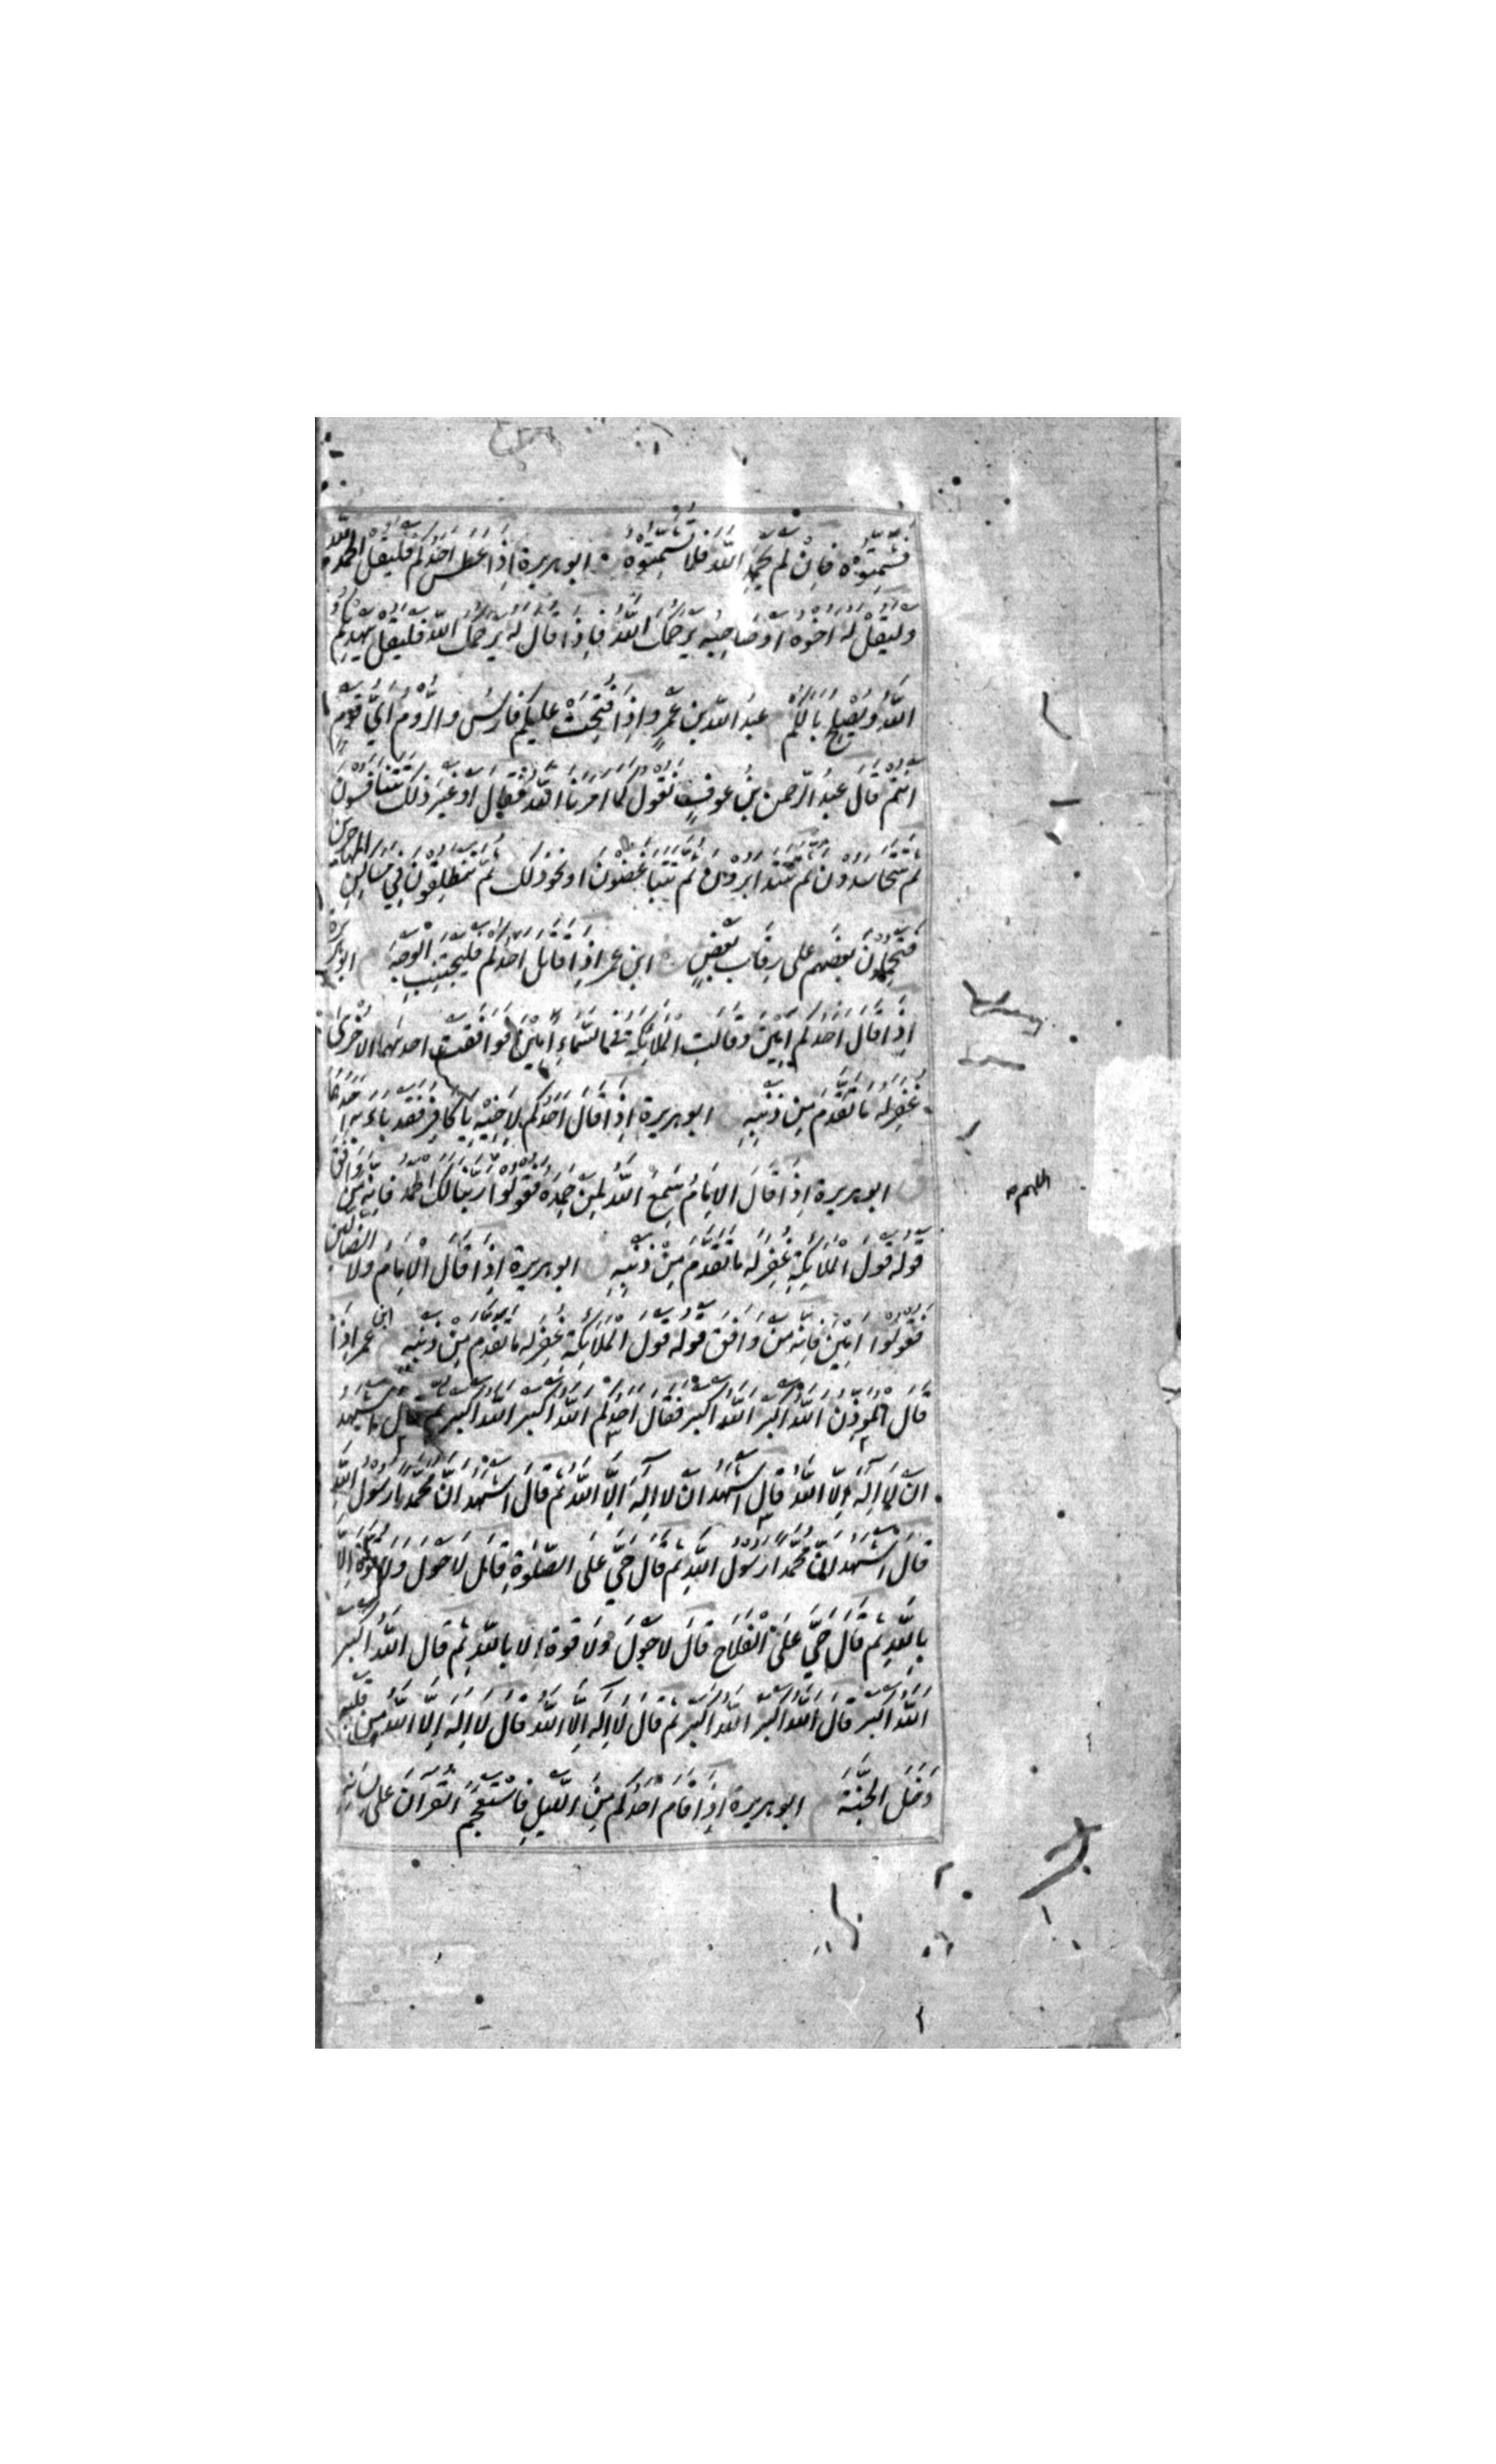 فَشَمِّتُوْهُ فَاِنْ لَمْ يَحْمَدِ اللّٰهَ فَلَا تُشَمِّتُوْهُ ابو هريرة اِذَا عَطَسَ اَحَدُكُمْ فَلْيَقُلِ الْحَمْدُ لِلّٰهِ
وَلْيَقُلْ لَهُ اَخُوْهُ اَوْ صَاحِبُهُ يَرْحَمُكَ اللّٰهُ فَاِذَا قَالَ لَهُ يَرْحَمُكَ اللّٰهُ فَلْيَقُلْ يَهْدِيْكُمُ
اللّٰهُ وَيُصْلِحُ بَالَكُمْ عبد اللّٰه بن عمرٍو اِذَا فُتِحَتْ عَلَيْكُمْ فَارِسُ وَالرُّوْمُ اَيُّ قَوْمٍ
اَنْتُمْ قَالَ عَبْدُ الرَّحْمٰنِ بْنُ عَوْفٍ نَقُوْلُ كَمَا اَمَرَنَا اللّٰهُ فَقَالَ اَوْ غَيْرَ ذٰلِكَ تَتَنَافَسُوْنَ
ثُمَّ تَتَحَاسَدُوْنَ ثُمَّ تَتَدَابَرُوْنَ ثُمَّ تَتَبَاغَضُوْنَ اَوْ نَحْوَ ذٰلِكَ ثُمَّ تَنْطَلِقُوْنَ فِيْ مَسَاكِيْنِ الْمُهَاجِرِيْنَ
فَتَجْعَلُوْنَ بَعْضَهُمْ عَلٰى رِقَابِ بَعْضٍ ابن عمر اِذَا قَاتَلَ اَحَدُكُمْ فَلْيَجْتَنِبِ الْوَجْهَ ابو هريرة
اِذَا قَالَ اَحَدُكُمْ اٰمِيْنَ وَقَالَتِ الْمَلَائِكَةُ فِي السَّمَاءِ اٰمِيْنَ فَوَافَقَتْ اِحْدٰىهُمَا الْاُخْرٰى
غُفِرَ لَهُ مَا تَقَدَّمَ مِنْ ذَنْبِهِ ابو هريرة اِذَا قَالَ اَحَدُكُمْ لِاَخِيْهِ يَا كَافِرُ فَقَدْ بَاءَ بِهِ اَحَدُهُمَا
ابو هريرة اِذَا قَالَ الْاِمَامُ سَمِعَ اللّٰهُ لِمَنْ حَمِدَهُ فَقُوْلُوْا رَبَّنَا لَكَ الْحَمْدُ فَاِنَّهُ مَنْ وَافَقَ
اللهم
قَوْلُهُ قَوْلَ الْمَلَائِكَةِ غُفِرَ لَهُ مَا تَقَدَّمَ مِنْ ذَنْبِهِ ابو هريرة اِذَا قَالَ الْاِمَامُ وَلَا الضَّالِّيْنَ
فَقُوْلُوْا اٰمِيْنَ فَاِنَّهُ مَنْ وَافَقَ قَوْلُهُ قَوْلَ الْمَلَائِكَةِ غُفِرَ لَهُ مَا تَقَدَّمَ مِنْ ذَنْبِهِ ابن عمر اِذَا
قَالَ الْمُؤَذِّنُ اللّٰهُ اَكْبَرُ اللّٰهُ اَكْبَرُ فَقَالَ اَحَدُكُمْ اللّٰهُ اَكْبَرُ اللّٰهُ اَكْبَرُ ثُمَّ قَالَ اَشْهَدُ
اَنْ لَا اِلٰهَ اِلَّا اللّٰهُ قَالَ اَشْهَدُ اَنْ لَا اِلٰهَ اِلَّا اللّٰهُ ثُمَّ قَالَ اَشْهَدُ اَنَّ مُحَمَّدًا رَسُوْلُ اللّٰهِ
قَالَ اَشْهَدُ اَنَّ مُحَمَّدًا رَسُوْلُ اللّٰهِ ثُمَّ قَالَ حَيَّ عَلَى الصَّلٰوةِ قَالَ لَا حَوْلَ وَلَا قُوَّةَ اِلَّا
بِاللّٰهِ ثُمَّ قَالَ حَيَّ عَلَى الْفَلَاحِ قَالَ لَا حَوْلَ وَلَا قُوَّةَ اِلَّا بِاللّٰهِ ثُمَّ قَالَ اللّٰهُ اَكْبَرُ
اللّٰهُ اَكْبَرُ قَالَ اللّٰهُ اَكْبَرُ اللّٰهُ اَكْبَرُ ثُمَّ قَالَ لَا اِلٰهَ اِلَّا اللّٰهُ قَالَ لَا اِلٰهَ اِلَّا اللّٰهُ مِنْ قَلْبِهِ
دَخَلَ الْجَنَّةَ ابو هريرة اِذَا قَامَ اَحَدُكُمْ مِنَ اللَّيْلِ فَاسْتَعْجَمَ الْقُرْاٰنُ عَلٰى لِسَانِهِ